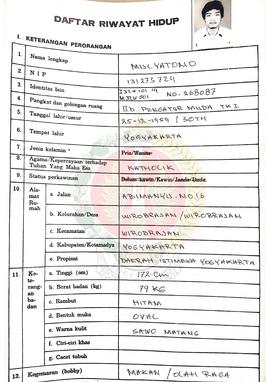 DAFTAR RIWAYAT HIDUP
I. KETERANGAN PERORANGAN
1. Nama lengkap MULYATONO
2. N I P 131273724
3. Identitas lain NO. 268087
4. Pangkat dan golongan ruang II b. PENGATUR MUDA TK I
5. Tanggal lahir/umur 25-12-1959 / 30TH
6. Tempat lahir YOGYAKARTA
7. Jenis kelamin Pria/Wanita
8. Agama/Kepercayaan terhadap Tuhan Yang Maha Esa KATHOLIK
9. Status perkawinan Belum kawin/Kawin/Janda/Duda
10. Alamat Rumah
a. Jalan ABIMANYU. NO.16
b. Kelurahan/Desa WIROBRAJAN/WIROBRAJAN
c. Kecamatan WIROBRAJAN
d. Kabupaten/Kotamadya YOGYAKARTA
e. Propinsi DAERAH ISTIMEWA YOGYAKARTA
11. Keterangan badan
a. Tinggi (cm) 172 Cm
b. Berat badan (kg) 79 KG
c. Rambut HITAM
d. Bentuk muka OVAL
e. Warna kulit SAWO MATANG
f. Ciri-ciri khas
g. Cacat tubuh
12. Kegemaran (hobby) MAKAN / OLAH RAGA